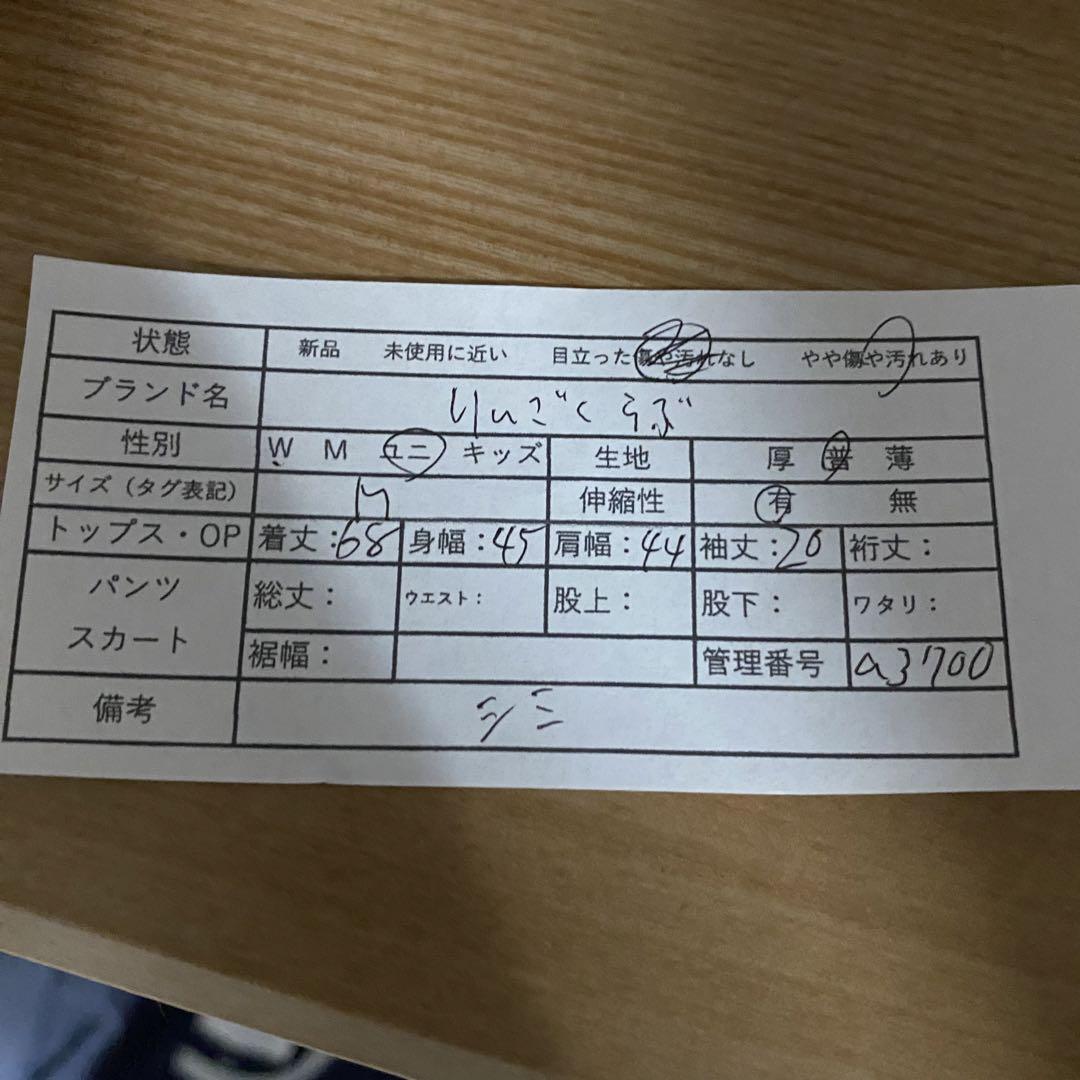 状態 新品 未使用に近い 目立った傷や汚れなし やや傷や汚れあり
ブランド名 りんごくらぶ
性別 W M ユニ キッズ 生地 厚 普 薄
サイズ（タグ表記） M 伸縮性 有 無
トップス・OP 着丈：68 身幅：45 肩幅：44 袖丈：20 裄丈：
パンツ スカート 総丈： ウエスト： 股上： 股下： ワタリ：
裾幅： 管理番号 a3700
備考 シミ